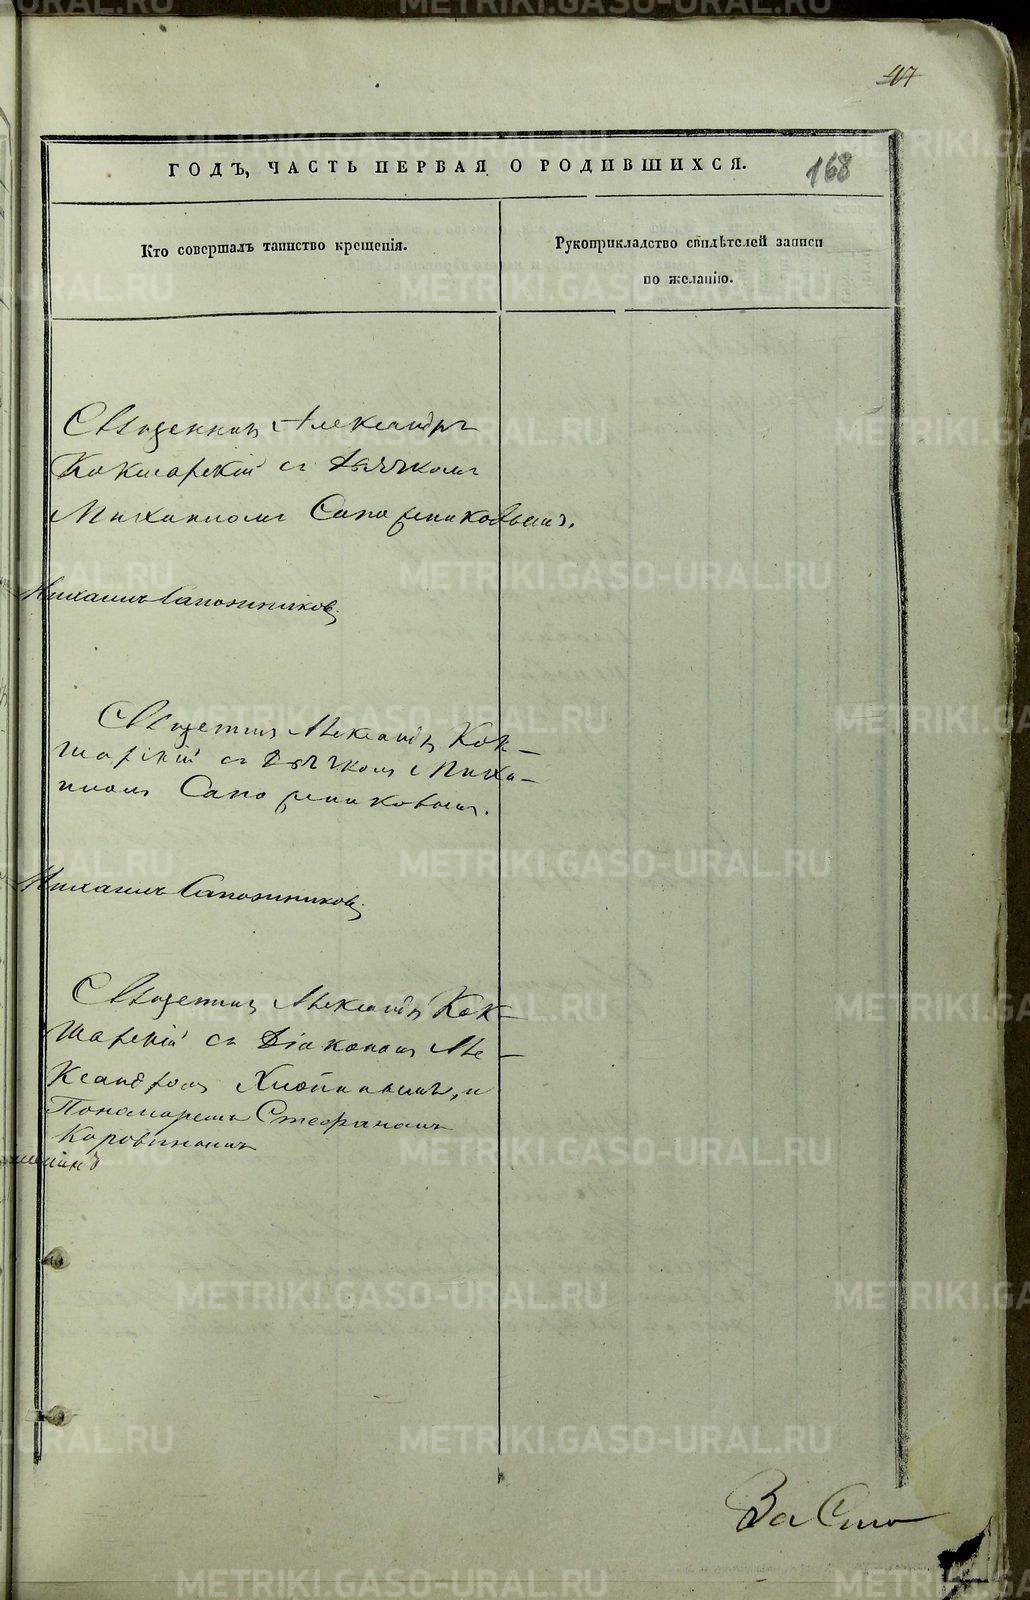 47
168
ГОДЪ, ЧАСТЬ ПЕРВАЯ О РОДИВШИХСЯ.
Кто совершалъ таинство крещенія.
Рукоприкладство свидѣтелей записи
по желанію.
Священникъ Александръ
Кокшарскій съ Дьячкомъ
Михаиломъ Сапожниковымъ.
Михаилъ Сапожниковъ.
Священникъ Александръ Кок-
шарскій съ Дьячкомъ Миха-
иломъ Сапожниковымъ.
Михаилъ Сапожниковъ.
Священникъ Александръ Кок-
шарскій съ Діакономъ Але-
ксандромъ Хлопиным, и
Пономаремъ Стефаномъ
Коровинымъ
За Сто
METRIKI.GASO-URAL.RU